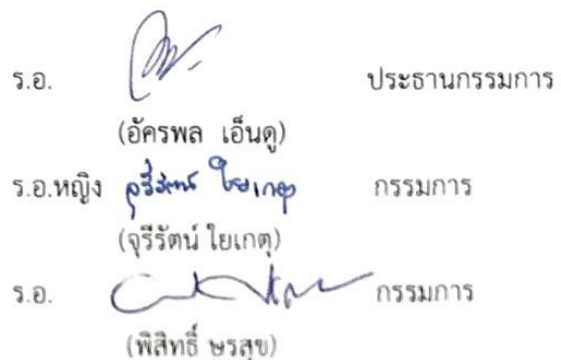 ร.อ. ประธานกรรมการ
(อัครพล เอ็นดู)
ร.อ.หญิง จุรีรัตน์ ใยเกตุ กรรมการ
(จุรีรัตน์ ใยเกตุ)
ร.อ. กรรมการ
(พิสิทธิ์ ษรสุข)